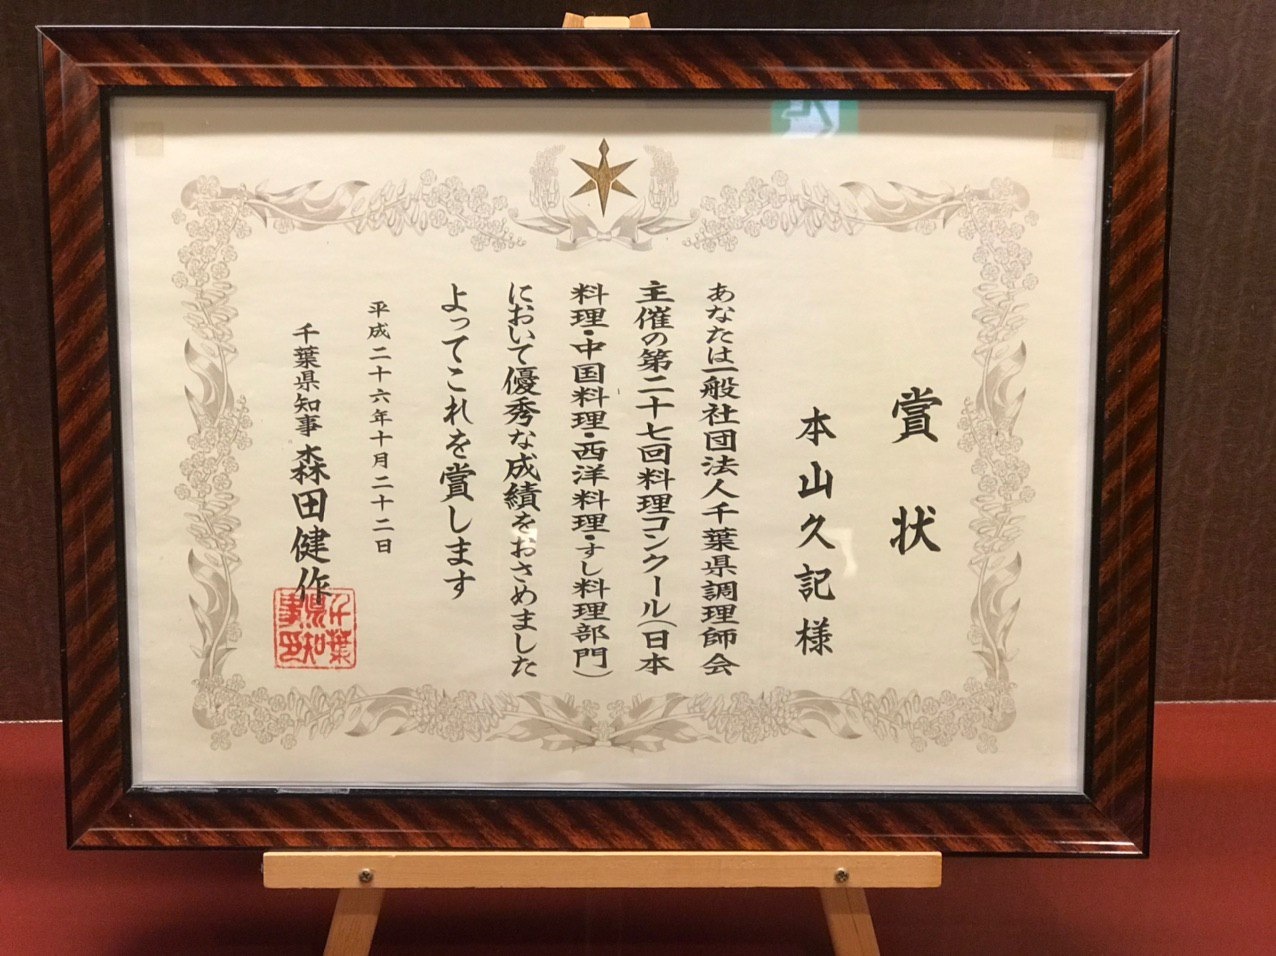 賞状
本山久記様
あなたは一般社団法人千葉県調理師会
主催の第二十七回料理コンクール(日本
料理・中国料理・西洋料理・すし料理部門)
において優秀な成績をおさめました
よってこれを賞します
平成二十六年十月二十二日
千葉県知事 森田健作
千葉
県知
事印